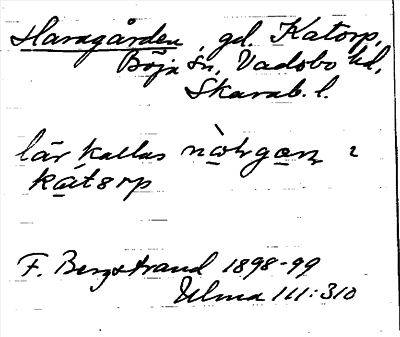 Haragården, gd. Katorp,
Böja sn, Vadsbo hd,
Skarab. l.
lär kallas i
katorp
F. Bergstrand 1898-99
Ulma 111:310